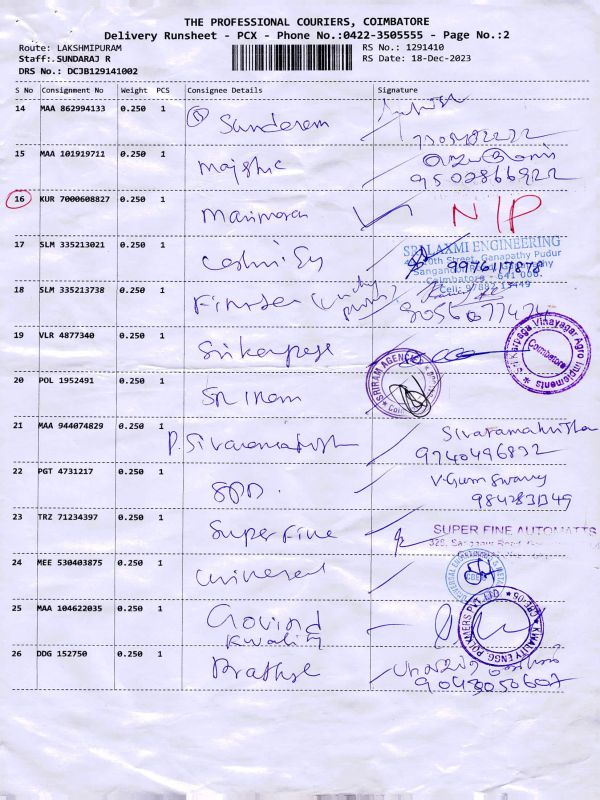 THE PROFESSIONAL COURIERS, COIMBATORE
Delivery Runsheet - PCX - Phone No.:0422-3505555 - Page No.:2
Route: LAKSHMIPURAM
RS No.: 1291410
Staff: SUNDARAJ R
RS Date: 18-Dec-2023
DRS No.: DCJB129141002
S No Consignment No Weight PCS Consignee Details Signature
14 MAA 862994133 0.250 1 Sunderam
15 MAA 101919711 0.250 1
9502866922
16 KUR 7000608827 0.250 1 N/P
17 SLM 335213021 0.250 1
SRI LAXMI ENGINEERING
Street, Ganapathy Pudur
9976117878
Coimbatore - 641 006.
Cell: 97887 13449
18 SLM 335213738 0.250 1
19 VLR 4877340 0.250 1
Vinayagar Agro Implements
Coimbatore
20 POL 1952491 0.250 1 SRI RAM
SRIRAM AGENCY
21 MAA 944074829 0.250 1 P. Sivaramakrish Sivaramakrishna
9740496832
22 PGT 4731217 0.250 1
23 TRZ 71234397 0.250 1 Super Fine SUPER FINE AUTOMATTS
24 MEE 530403875 0.250 1 universal
25 MAA 104622035 0.250 1 Govind
Kwality
KWALITY ENGG. POLYMERS PVT. LTD. CBE-05
26 DDG 152750 0.250 1